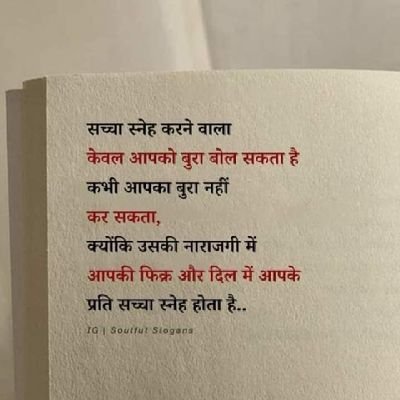 सच्चा स्नेह करने वाला
केवल आपको बुरा बोल सकता है
कभी आपका बुरा नहीं
कर सकता,
क्योंकि उसकी नाराजगी में
आपकी फिक्र और दिल में आपके
प्रति सच्चा स्नेह होता है..
IG | Soulful Slogans